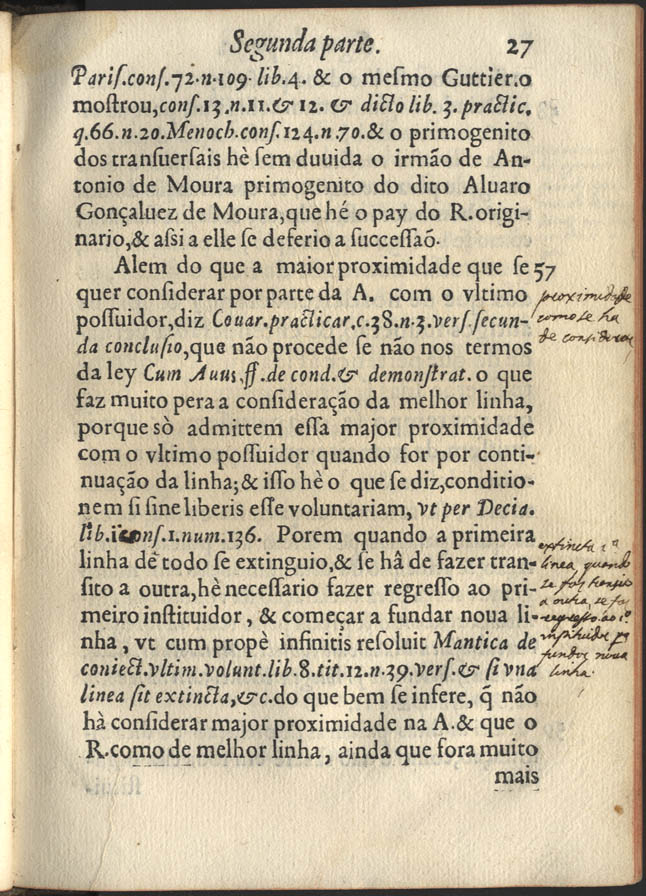 Segunda parte. 27
Pariſ.conſ.72.n.109. lib.4. & o meſmo Guttier.o
moſtrou,conſ.13.n.11.& 12. & dicto lib. 3. practic.
q.66.n.20.Menoch.conſ.124.n.70.& o primogenito
dos tranſuerſais hè ſem duuida o irmão de An-
tonio de Moura primogenito do dito Aluaro
Gonçaluez de Moura,que hé o pay do R.origi-
nario,& aſsi a elle ſe deferio a ſucceſſaõ.
Alem do que a maior proximidade que ſe 57
quer conſiderar por parte da A. com o vltimo
poſſuidor,diz Couar.practicar.c.38.n.3.verſ.ſecun-
da concluſio,que não procede ſe não nos termos
da ley Cum Auus,ff.de cond.& demonſtrat. o que
faz muito pera a conſideração da melhor linha,
porque sò admittem eſſa major proximidade
com o vltimo poſſuidor quando for por conti-
nuação da linha;& iſſo hè o que ſe diz,conditio-
nem ſi ſine liberis eſſe voluntariam, vt per Decia.
lib. conſ.1.num.136. Porem quando a primeira
linha de todo ſe extinguio,& ſe hâ de fazer tran-
ſito a outra,hè neceſſario fazer regreſſo ao pri-
meiro inſtituidor, & começar a fundar noua li-
nha, vt cum propè infinitis reſoluit Mantica de
coniect.vltim.volunt.lib.8.tit.12.n.39.verſ.& ſi vna
linea ſit extincta,&c.do que bem ſe infere, q̃ não
hà conſiderar major proximidade na A.& que o
R.como de melhor linha, ainda que fora muito
mais
proximidade
como se ha
de considerar
extincta 1ª
linea quando
se faz transito
a outra, se fa
regresso ao 1º
instituidor pª
fundar noua
linha.